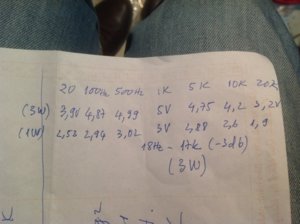 20 100Hz 500Hz 1K 5K 10K 20K
(3W) 3,90 4,87 4,99 5V 4,75 4,2 3,2V
(1W) 2,53 2,94 3,02 3V 2,88 2,6 1,9
18Hz - 17K (-3db)
(3W)